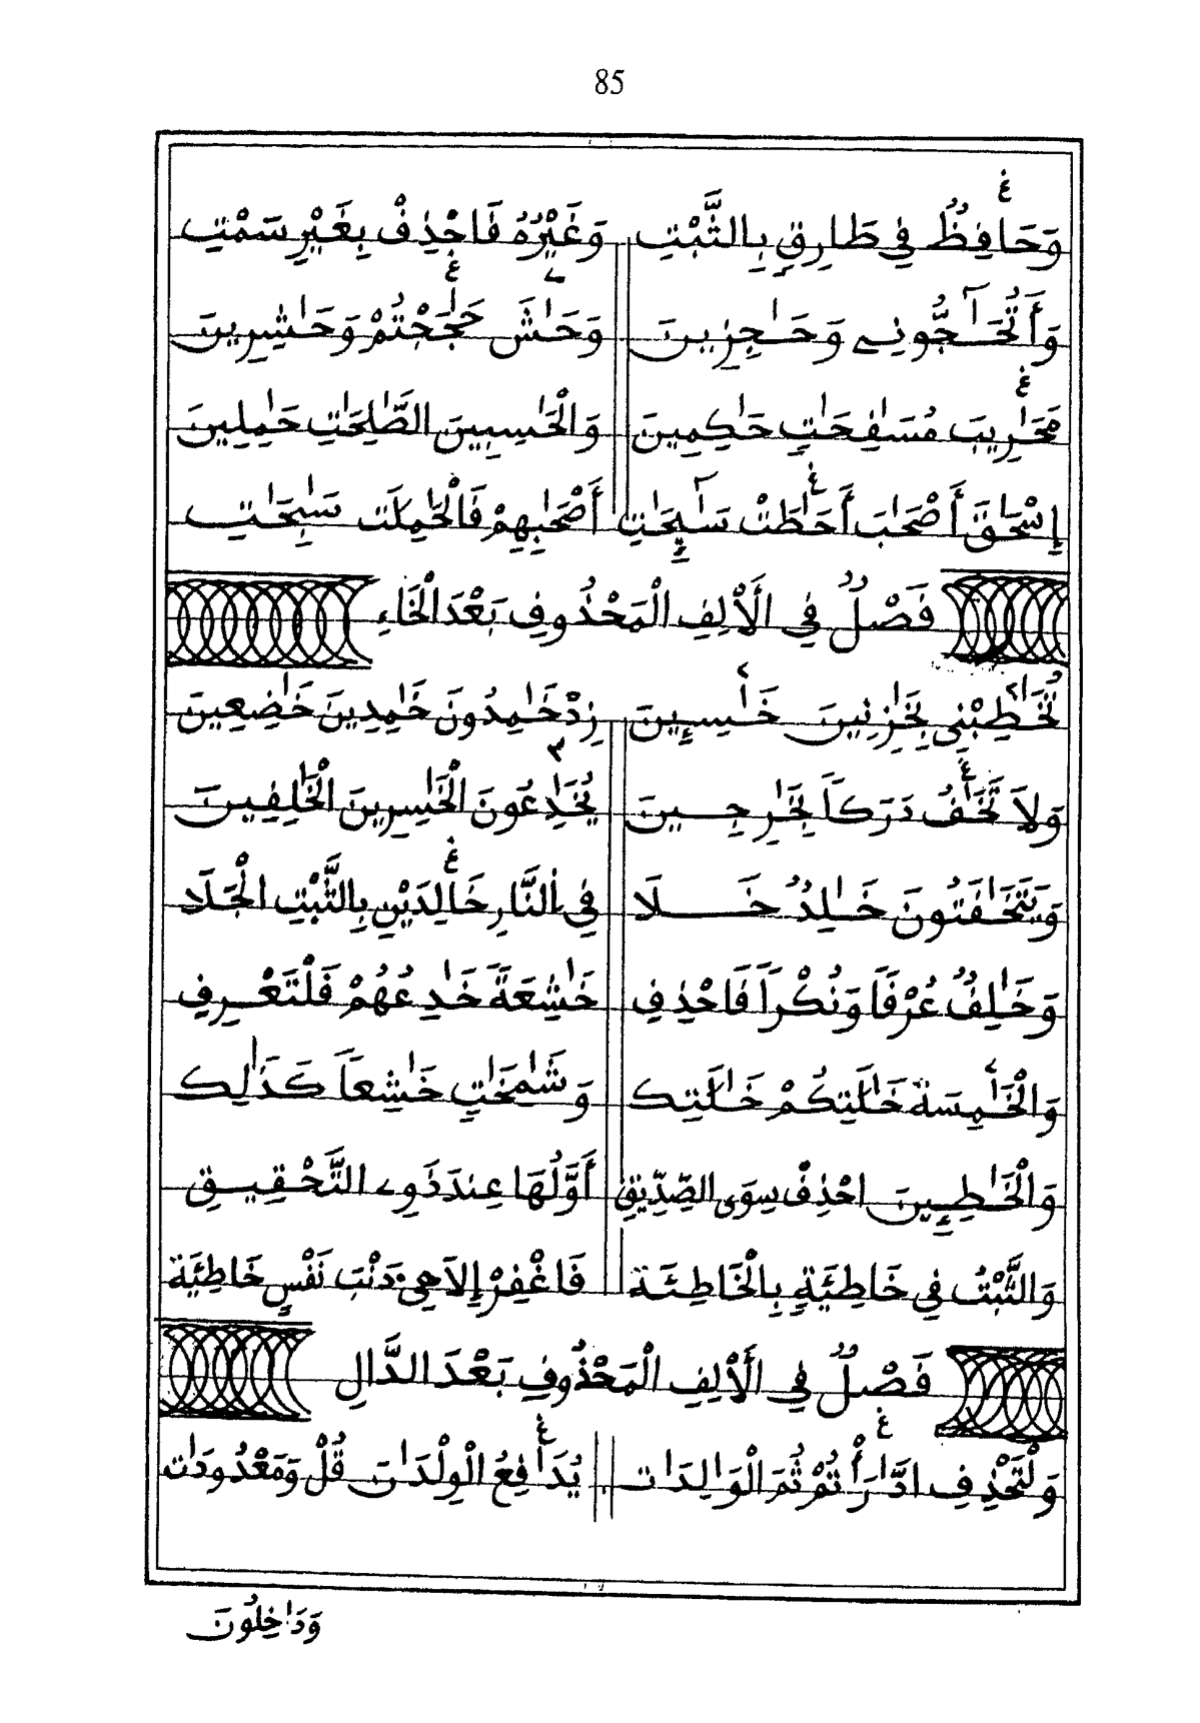 85
وَحَافِظٌ فِي طَارِقٍ بِالثَّبْتِ وَغَيْرُهُ فَاحْذِفْ بِغَيْرِ سَمْتِ
وَأَتُحَـٰٓجُّونِے وَحَـٰجِزِينَ وَحَـٰشَ حَـٰجَجْتُمْ وَحَـٰشِرِينَ
مَحَـٰرِيبَ مُسَـٰفِحَـٰتٍ حَـٰكِمِينَ وَالْحَـٰسِبِينَ الصَّـٰلِحَـٰتِ حَـٰمِلِينَ
إِسْحَـٰقَ أَصْحَـٰبَ أَحَـٰطَتْ سَـٰٓئِحَـٰتٍ أَصْحَـٰبِهِمْ فَالْحَـٰمِلَـٰتِ سَـٰبِحَـٰتِ
فَصْلٌ فِي الْأَلِفِ الْمَحْذُوفِ بَعْدَ الْخَاءِ
تُخَـٰطِبْنِي بِخَـٰزِنِينَ خَـٰسِـِٕينَ زِدْ خَـٰمِدُونَ خَـٰمِدِينَ خَـٰضِعِينَ
وَلَا تَخَـٰفُ دَرَكاً بِخَـٰرِجِينَ يُخَـٰدِعُونَ الْخَـٰسِرِينَ الْخَـٰلِفِينَ
وَيَتَخَـٰفَتُونَ خَـٰلِدٌ خَلَا فِي النَّارِ خَـٰلِدَيْنِ بِالثَّبْتِ انْجَلَا
وَخَـٰلِفُ عُرْفاً وَنُكْراً فَاحْذِفِ خَـٰشِعَةً خَـٰدِعُهُمْ فَلْتَعْرِفِ
وَالْخَـٰمِسَةُ خَـٰلَـٰتِكُمْ خَـٰلَـٰتِك وَشَـٰمِخَـٰتٍ خَـٰشِعاً كَذَٰلِك
وَالْخَـٰطِـِٕينَ احْذِفْ سِوَى الصِّدِّيقِ أَوَّلُهَا عِندَ ذَوِے التَّحْقِيقِ
وَالثَّبْتُ فِي خَاطِئَةٍ بِالْخَاطِئَة فَاغْفِرْ إِلَاهِي ذَنْبَ نَفْسٍ خَاطِئَة
فَصْلٌ فِي الْأَلِفِ الْمَحْذُوفِ بَعْدَ الدَّالِ
وَلْتَحْذِفِ ادَّٰرَٰٔتُمْ ثُمَّ الْوَالِدَٰت يُدَٰفِعُ الْوِلْدَٰنَ قُلْ وَمَعْدُودَٰت
وَدَٰخِلُونَ